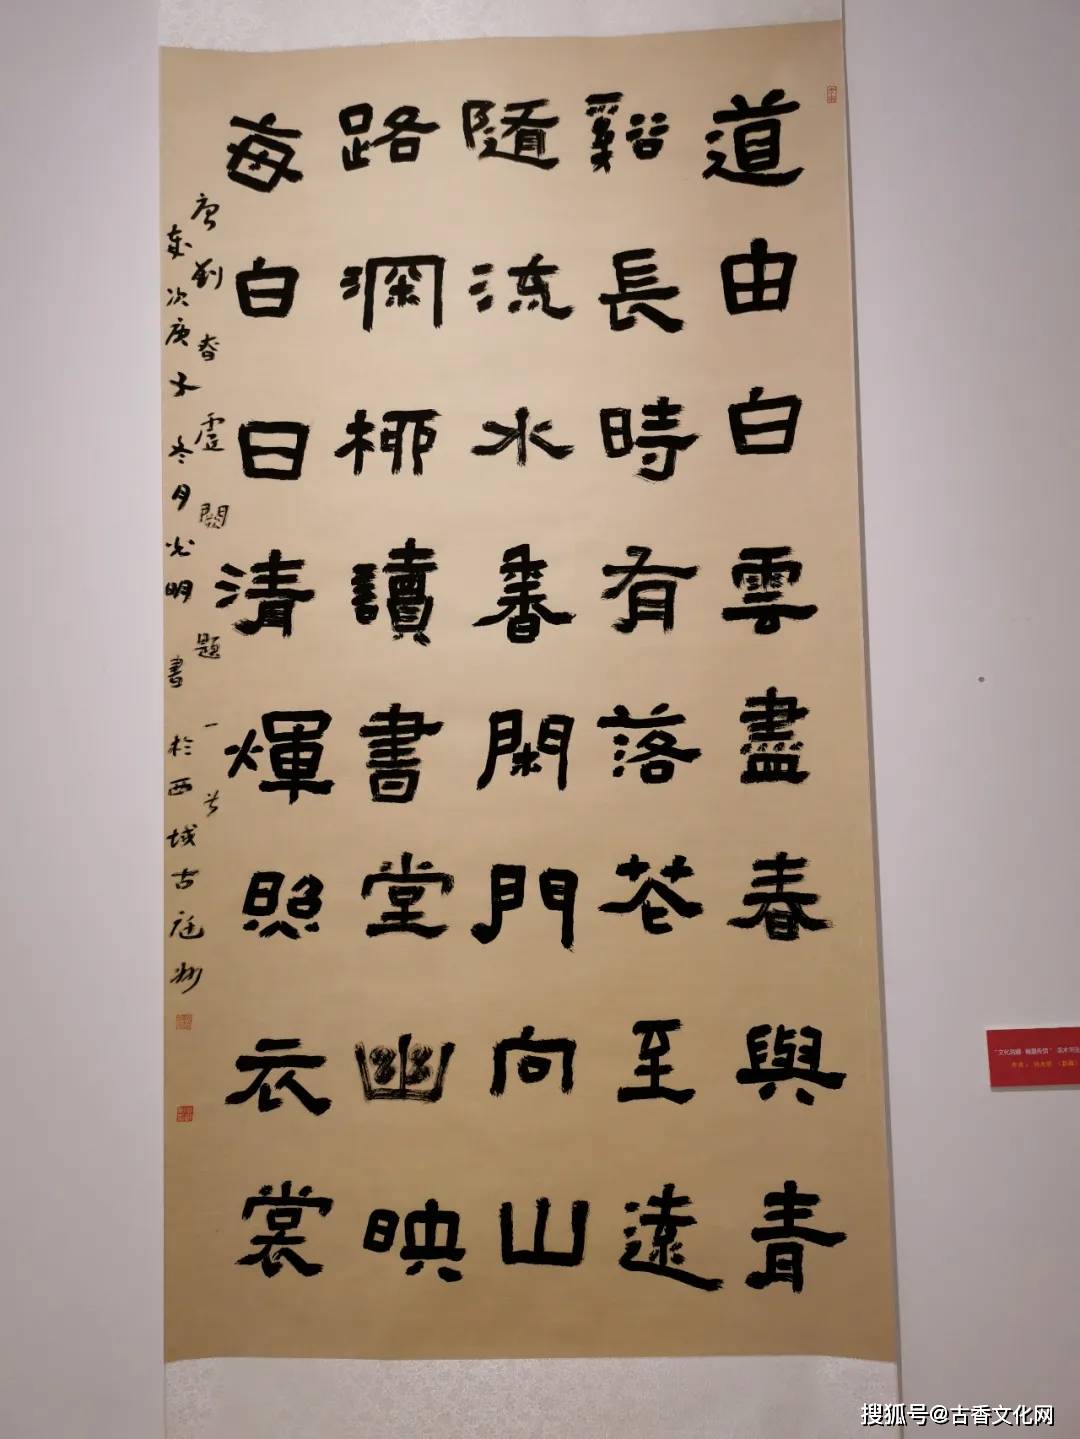 道由白雲盡春與青
谿長時有落花至遠
隨流水香閑門向山
路深柳讀書堂幽映
每白日清煇照衣裳
唐劉昚虛闕題一首
歲次庚子冬月光明書於西域古庭州
搜狐号@古香文化网